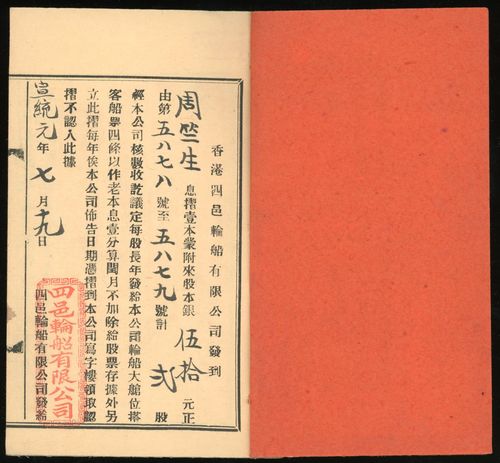 香港四邑輪船有限公司發到
周竺生 息摺壹本蒙附來股本銀 伍拾 元正
由第 五八七八 號至 五八七九 號計 弍 股
經本公司核數收訖議定每股長年發給本公司輪船大艙位搭
客船票四條以作老本息壹分算閏月不加除給股票存據外另
立此摺每年俟本公司佈告日期憑摺到本公司寫字樓領取認
摺不認人此據
宣統元年七月十九日
四邑輪船有限公司發給
四邑輪船有限公司